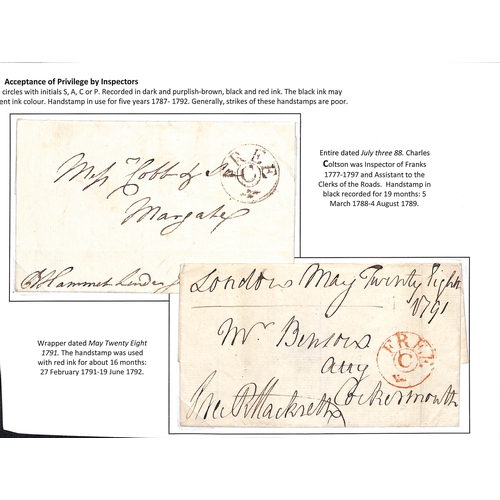 Acceptance of Privilege by Inspectors
circles with initials S, A, C or P. Recorded in dark and purplish-brown, black and red ink. The black ink may
ent ink colour. Handstamp in use for five years 1787- 1792. Generally, strikes of these handstamps are poor.
Entire dated July three 88. Charles
Coltson was Inspector of Franks
1777-1797 and Assistant to the
Clerks of the Roads. Handstamp in
black recorded for 19 months: 5
March 1788-4 August 1789.
FREE
C
Messrs Cobb &
Margate
Hammet
London May Twenty Eight
1791
Wrapper dated May Twenty Eight
1791. The handstamp was used
with red ink for about 16 months:
27 February 1791-19 June 1792.
Mr Benson
FREE
C
Atty
Cockermouth
free